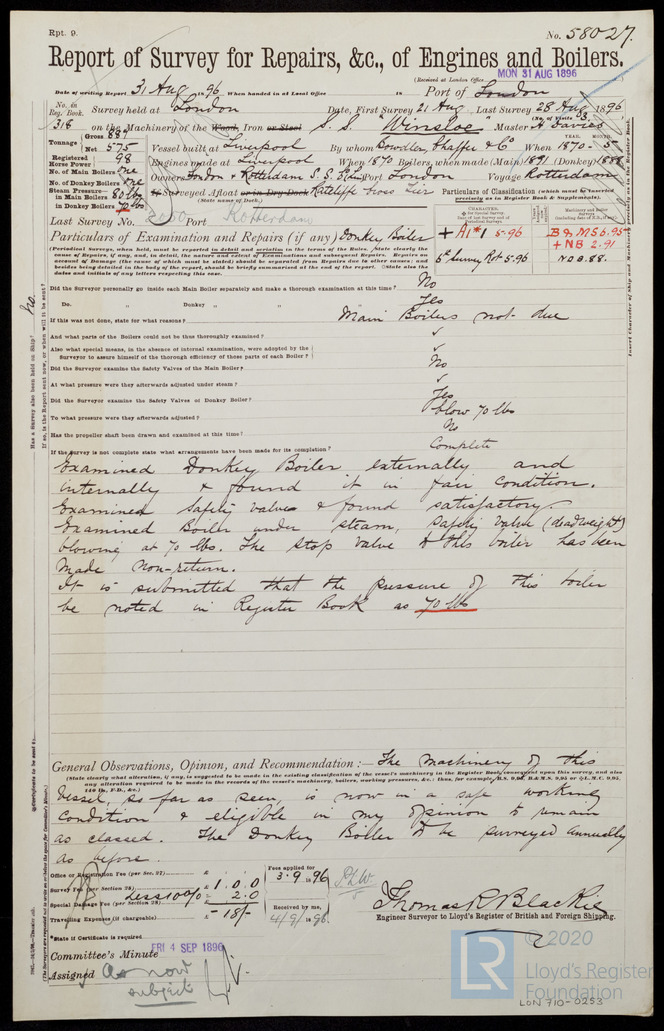 Rpt. 9.
No. 58027.
Report of Survey for Repairs, &c., of Engines and Boilers.
(Received at London Office MON 31 AUG 1896
Date of writing Report 31 Aug 1896 When handed in at Local Office 18 Port of London
No. in Reg. Book. Survey held at London Date, First Survey 21 Aug Last Survey 28 Aug 1896
(No. of Visits 3.)
318 on the Machinery of the Wood, Iron or Steel S. S. "Winsloe" Master A Davies
Tonnage Gross 881 Net 575
Vessel built at Liverpool By whom Bowdler, Chaffer & Co When 1870-5
YEAR. MONTH.
Registered Horse Power 98
Engines made at Liverpool When 1870 Boilers, when made (Main) 1891 (Donkey) 1888
No. of Main Boilers One
No. of Donkey Boilers One
Owners London & Rotterdam S. S. Co Port London Voyage Rotterdam
Steam Pressure in Main Boilers 80 lbs
in Donkey Boilers 70 lbs
If Surveyed Afloat or in Dry Dock Ratcliffe Cross Tier
(State name of Dock.)
Particulars of Classification (which must be inserted precisely as in Register Book & Supplements).
Last Survey No. Port Rotterdam
CHARACTER.
+ A1* 1 5.96
5th Survey Rot 5.96
B & M S 6.95
+ NB 2.91
N D B. 88.
Particulars of Examination and Repairs (if any) Donkey Boiler
(Periodical Surveys, when held, must be reported in detail and seriatim in the terms of the Rules. State clearly the cause of Repairs, if any, and, in detail, the nature and extent of Examinations and subsequent Repairs. Repairs on account of Damage (the cause of which must be stated) should be separated from Repairs due to other causes; and besides being detailed in the body of the report, should be briefly summarised at the end of the report. State also the dates and initials of any letters respecting this case.
Did the Surveyor personally go inside each Main Boiler separately and make a thorough examination at this time? No
Do. Donkey " " " Yes
If this was not done, state for what reasons? Main Boilers not due
And what parts of the Boilers could not be thus thoroughly examined? ✓
Also what special means, in the absence of internal examination, were adopted by the Surveyor to assure himself of the thorough efficiency of those parts of each Boiler? ✓
Did the Surveyor examine the Safety Valves of the Main Boiler? No
At what pressure were they afterwards adjusted under steam? ✓
Did the Surveyor examine the Safety Valves of Donkey Boiler? Yes
To what pressure were they afterwards adjusted? blow 70 lbs
Has the propeller shaft been drawn and examined at this time? No
If the Survey is not complete state what arrangements have been made for its completion? Complete
Examined Donkey Boiler externally and
internally & found it in fair condition.
Examined Safety valve & found satisfactory.
Examined Boiler under steam, safety valve (deadweight)
blowing at 70 lbs. The stop valve to this boiler has been
made non-return.
It is submitted that the pressure of this boiler
be noted in Register Book as 70 lbs
General Observations, Opinion, and Recommendation:— The machinery of this
(State clearly what alteration, if any, is suggested to be made in the existing classification of the vessel's machinery in the Register Book, consequent upon this survey, and also any alteration required to be made in the records of the vessel's machinery, boilers, working pressures, &c.; thus, for example, B.S. 9.95, B.& M.S. 9.95 or L.M.C. 9.95, 140 lb., F.D., &c.)
vessel, so far as seen, is now in a safe working
condition & eligible in my opinion to remain
as classed. The Donkey Boiler to be surveyed annually
as before.
Office or Registration Fee (per Sec. 27)... £
Survey Fee (per Section 28)... £ 1.0.0
Special Damage Fee (per Section 28)... less 10% 2.0
Travelling Expenses (if chargeable) £ -18/-
Fees applied for 3.9.1896
Received by me, 4/9/1896.
Thomas R Blackie
Engineer Surveyor to Lloyd's Register of British and Foreign Shipping.
*State if Certificate is required
Committee's Minute FRI 4 SEP 1896
Assigned As now
subject
© 2020
LR
Lloyd's Register
Foundation
LON 710-0253